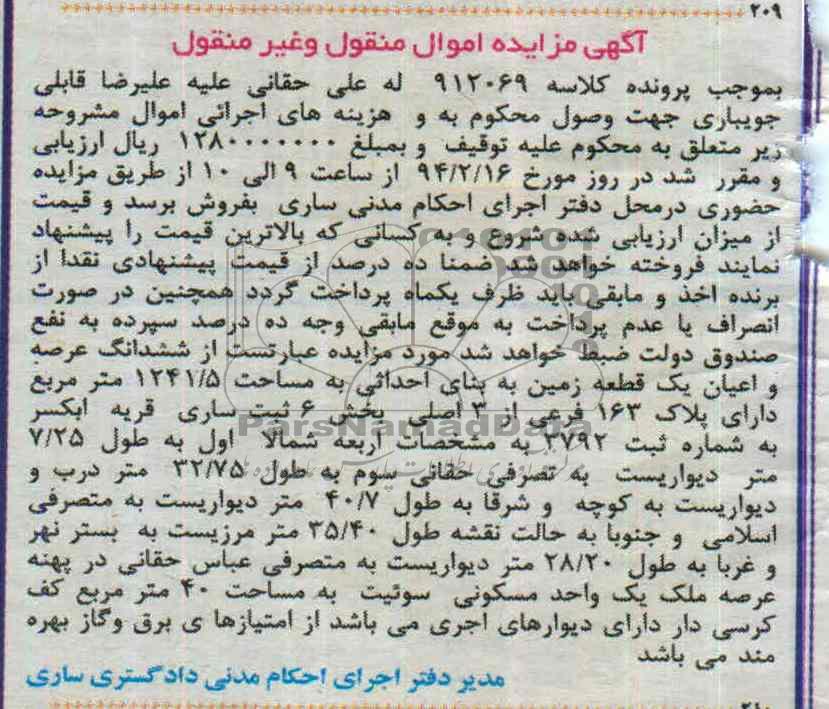 ۲۰۹
آگهی مزایده اموال منقول وغیر منقول
بموجب پرونده کلاسه ۹۱۲۰۶۹ له علی حقانی علیه علیرضا قابلی
جویباری جهت وصول محکوم به و هزینه های اجرائی اموال مشروحه
زیر متعلق به محکوم علیه توقیف و بمبلغ ۱۲۸۰۰۰۰۰۰۰ ریال ارزیابی
و مقرر شد در روز مورخ ۹۴/۲/۱۶ از ساعت ۹ الی ۱۰ از طریق مزایده
حضوری درمحل دفتر اجرای احکام مدنی ساری بفروش برسد و قیمت
از میزان ارزیابی شده شروع و به کسانی که بالاترین قیمت را پیشنهاد
نمایند فروخته خواهد شد ضمنا ده درصد از قیمت پیشنهادی نقدا از
برنده اخذ و مابقی باید ظرف یکماه پرداخت گردد همچنین در صورت
انصراف یا عدم پرداخت به موقع مابقی وجه ده درصد سپرده به نفع
صندوق دولت ضبط خواهد شد مورد مزایده عبارتست از ششدانگ عرصه
و اعیان یک قطعه زمین به بنای احداثی به مساحت ۱۲۴۱/۵ متر مربع
دارای پلاک ۱۶۳ فرعی از ۳ اصلی بخش ۶ ثبت ساری قریه ابکسر
ParsNamadData
به شماره ثبت ۲۷۹۲ به مشخصات اربعه شمالا اول به طول ۷/۲۵
متر دیواریست به تصرفی حقانی سوم به طول ۳۲/۷۵ متر درب و
دیواریست به کوچه و شرقا به طول ۴۰/۷ متر دیواریست به متصرفی
اسلامی و جنوبا به حالت نقشه طول ۳۵/۴۰ متر مرزیست به بستر نهر
و غربا به طول ۲۸/۲۰ متر دیواریست به متصرفی عباس حقانی در پهنه
عرصه ملک یک واحد مسکونی سوئیت به مساحت ۴۰ متر مربع کف
کرسی دار دارای دیوارهای اجری می باشد از امتیازها ی برق وگاز بهره
مند می باشد
مدیر دفتر اجرای احکام مدنی دادگستری ساری
۲۱۰